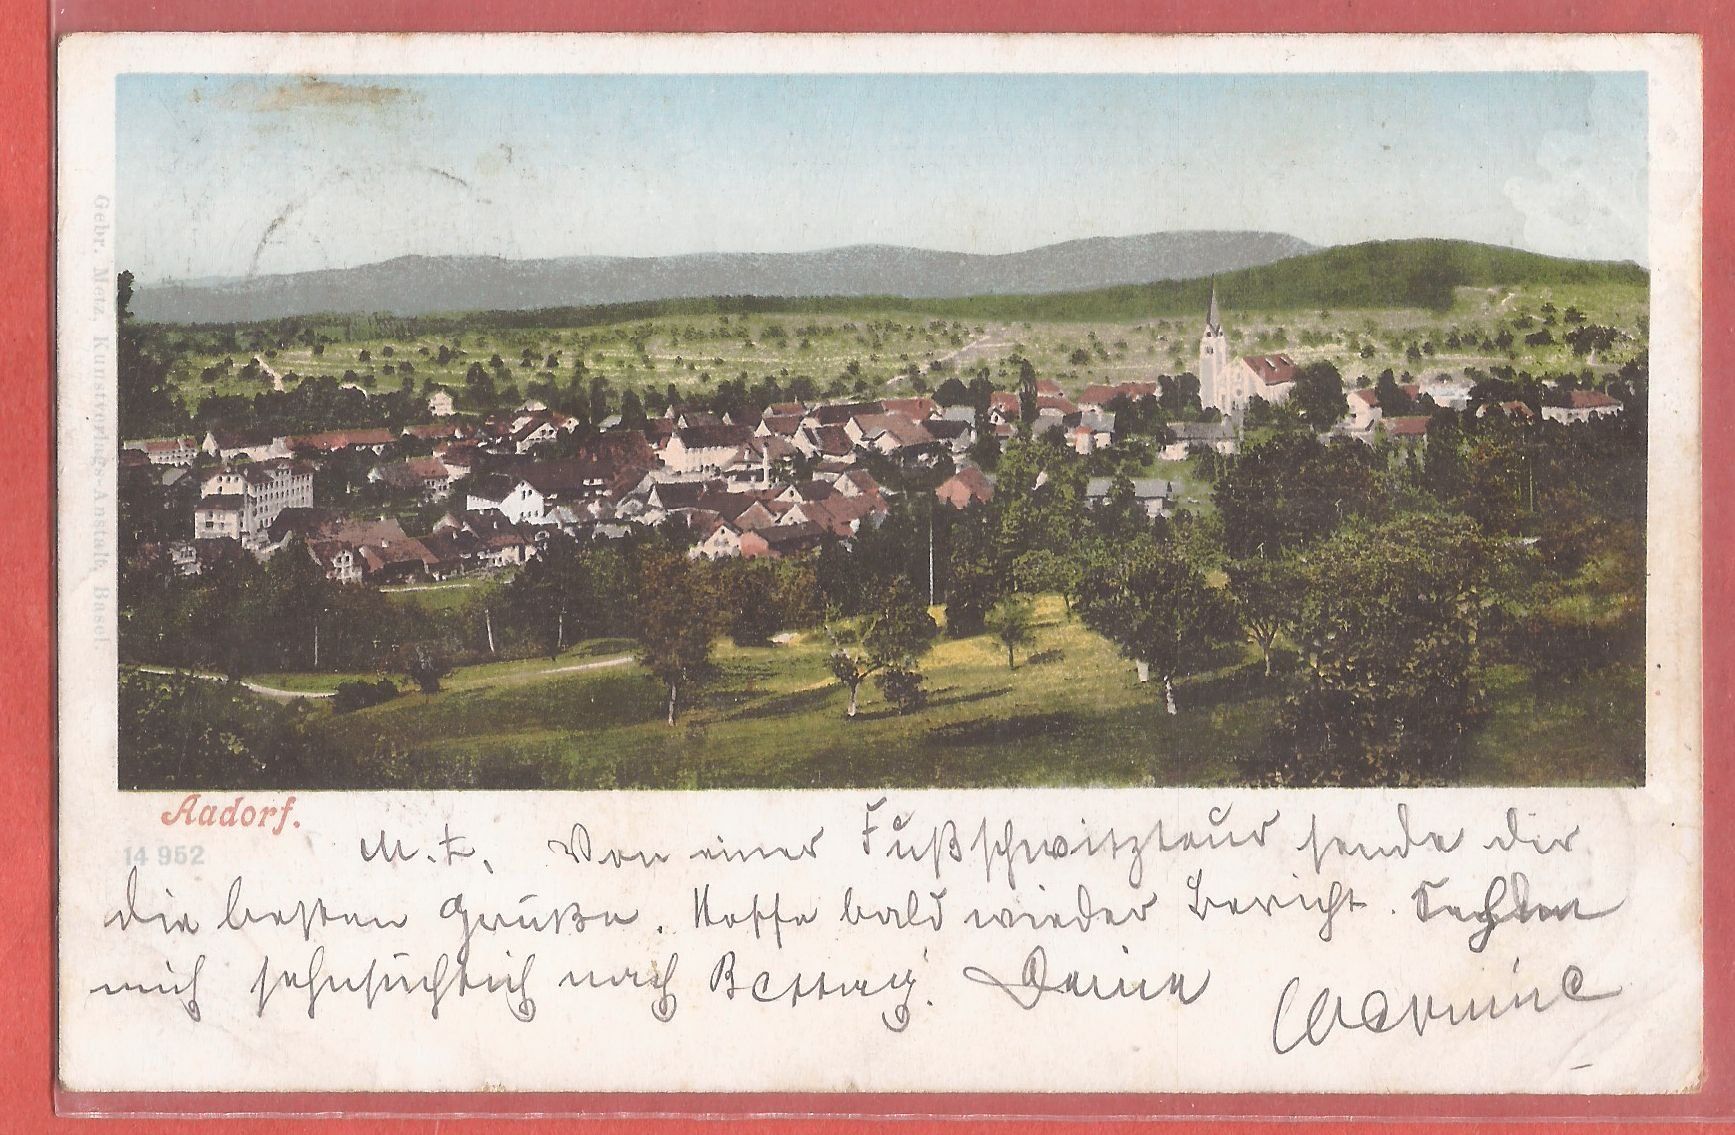 Gebr. Metz, Kunstverlags-Anstalt, Basel
Aadorf.
14 952
M. L. Von einer Fußschwitztour sende dir
die besten Grüße. Hoffe bald wieder Bericht.
mich sehnsüchtich nach Deine